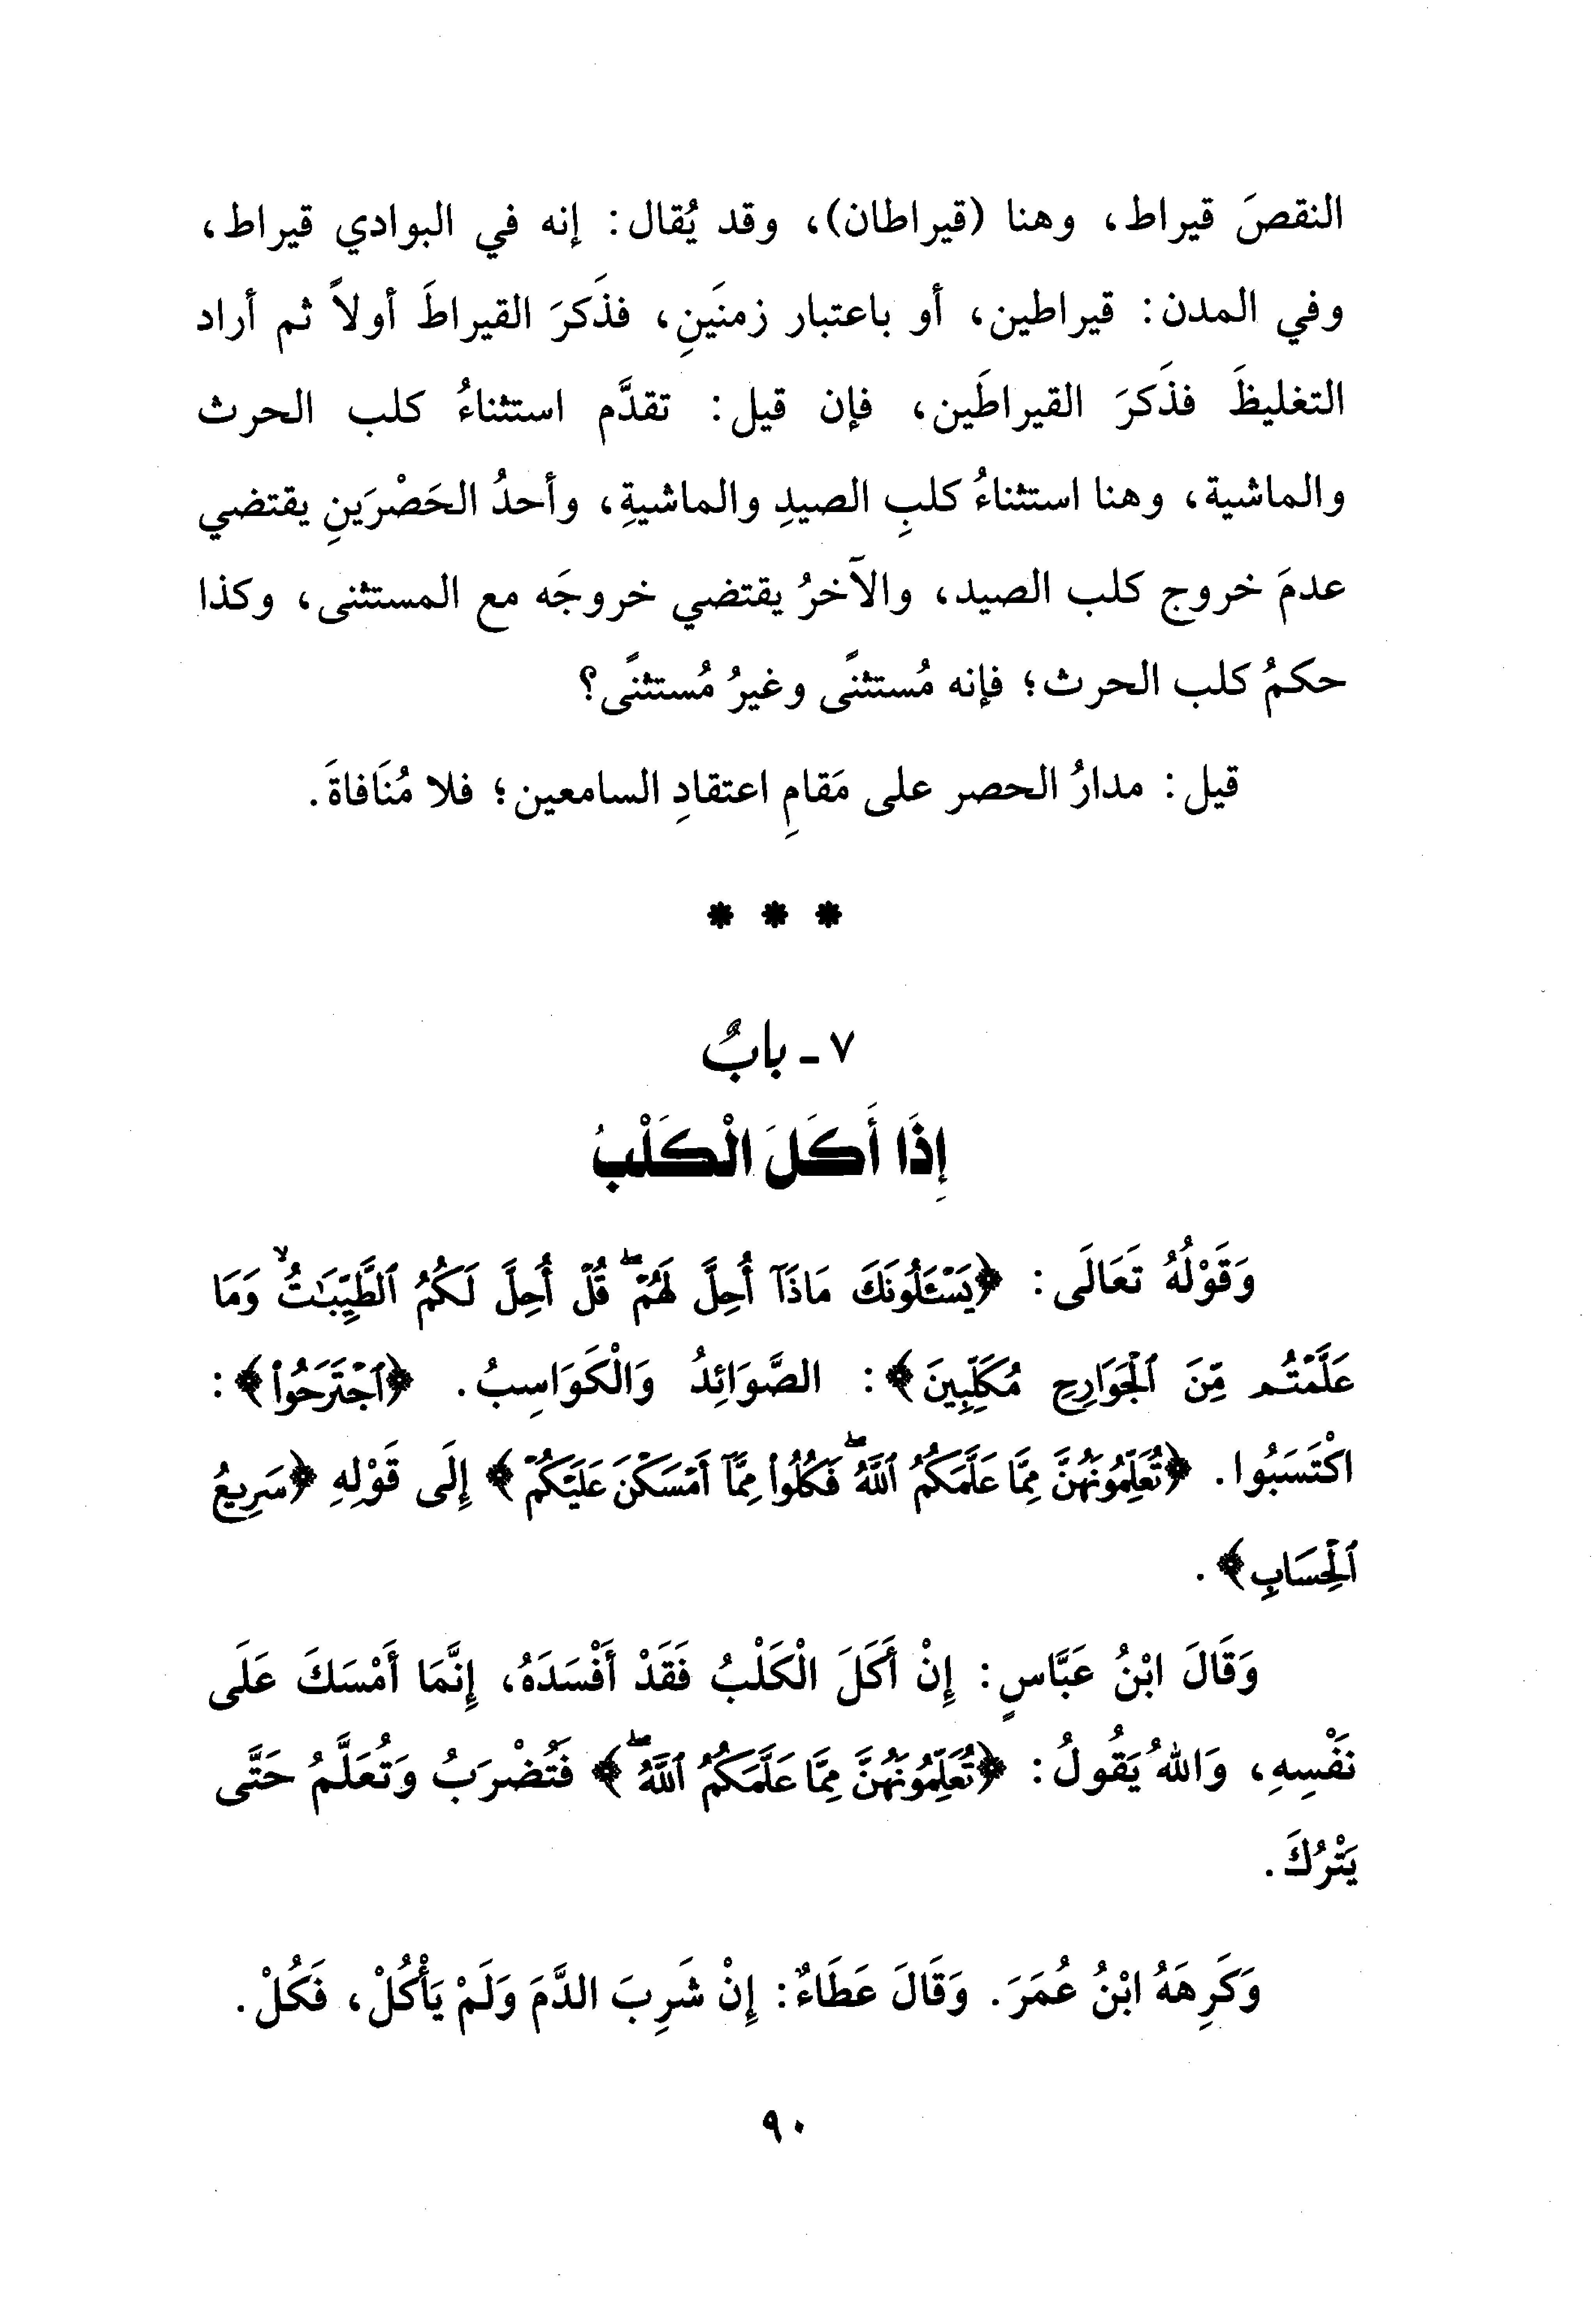 النقصَ قيراط، وهنا (قيراطان)، وقد يُقال: إنه في البوادي قيراط،
وفي المدن: قيراطين، أو باعتبار زمنَينِ، فذَكرَ القيراطَ أولاً ثم أراد
التغليظَ فذَكرَ القيراطَين، فإن قيل: تقدَّم استثناءُ كلب الحرث
والماشية، وهنا استثناءُ كلبِ الصيدِ والماشيةِ، وأحدُ الحَصْرَينِ يقتضي
عدمَ خروج كلب الصيد، والآخرُ يقتضي خروجَه مع المستثنى، وكذا
حكمُ كلب الحرث؛ فإنه مُستثنًى وغيرُ مُستثنًى؟
قيل: مدارُ الحصر على مَقامِ اعتقادِ السامعين؛ فلا مُنَافاةَ.
* * *
٧ - بابٌ
إِذَا أَكَلَ الْكَلْبُ
وَقَوْلُهُ تَعَالَى: ﴿يَسْـَٔلُونَكَ مَاذَآ أُحِلَّ لَهُمْ ۖ قُلْ أُحِلَّ لَكُمُ ٱلطَّيِّبَـٰتُ ۙ وَمَا
عَلَّمْتُم مِّنَ ٱلْجَوَارِحِ مُكَلِّبِينَ﴾: الصَّوَائِدُ وَالْكَوَاسِبُ. ﴿ٱجْتَرَحُوا۟﴾:
اكْتَسَبُوا. ﴿تُعَلِّمُونَهُنَّ مِمَّا عَلَّمَكُمُ ٱللَّهُ ۖ فَكُلُوا۟ مِمَّآ أَمْسَكْنَ عَلَيْكُمْ﴾ إِلَى قَوْلِهِ ﴿سَرِيعُ
ٱلْحِسَابِ﴾.
وَقَالَ ابْنُ عَبَّاسٍ: إِنْ أَكَلَ الْكَلْبُ فَقَدْ أَفْسَدَهُ، إِنَّمَا أَمْسَكَ عَلَى
نَفْسِهِ، وَاللهُ يَقُولُ: ﴿تُعَلِّمُونَهُنَّ مِمَّا عَلَّمَكُمُ ٱللَّهُ ۖ﴾ فَتُضْرَبُ وَتُعَلَّمُ حَتَّى
يَتْرُكَ.
وَكَرِهَهُ ابْنُ عُمَرَ. وَقَالَ عَطَاءٌ: إِنْ شَرِبَ الدَّمَ وَلَمْ يَأْكُلْ، فَكُلْ.
٩٠